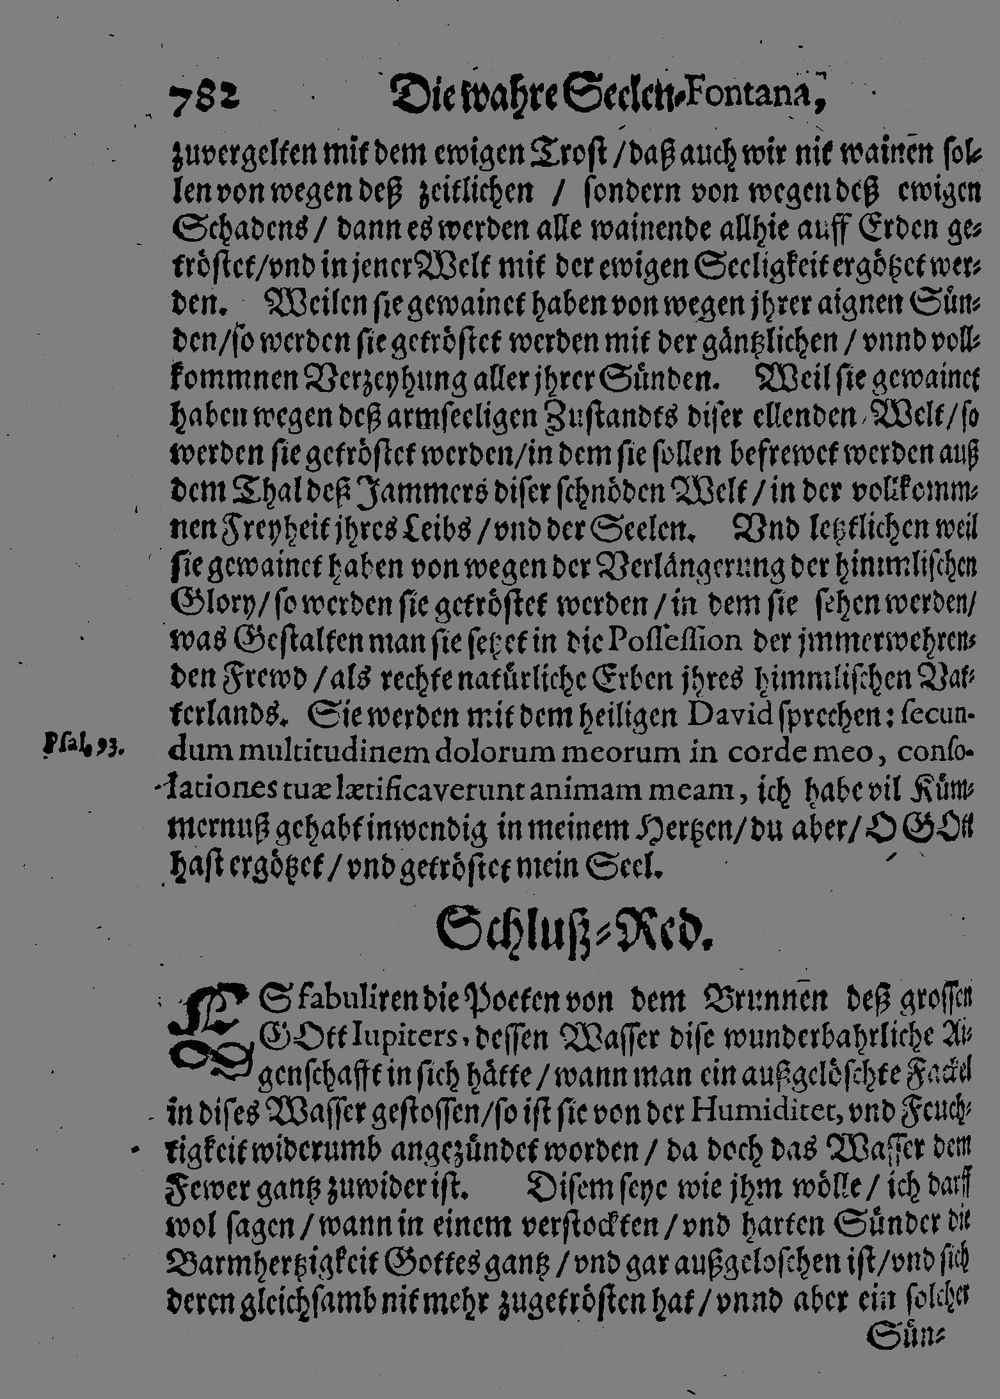 782 Die wahre Seelen-Fontana,
zuvergelten mit dem ewigen Trost / daß auch wir nit wainen sol-
len von wegen deß zeitlichen / sondern von wegen deß ewigen
Schadens / dann es werden alle wainende allhie auff Erden ge-
tröstet / vnd in jener Welt mit der ewigen Seeligkeit ergötzet wer-
den. Weilen sie gewainet haben von wegen jhrer aignen Sün-
den / so werden sie getröstet werden mit der gäntzlichen / vnnd voll-
kommnen Verzeyhung aller jhrer Sünden. Weil sie gewainet
haben wegen deß armseeligen Zustandts diser ellenden Welt / so
werden sie getröstet werden / in dem sie sollen befrewet werden auß
dem Thal deß Jammers diser schnöden Welt / in der vollkomm-
nen Freyheit jhres Leibs / vnd der Seelen. Vnd letztlichen weil
sie gewainet haben von wegen der Verlängerung der himmlischen
Glory / so werden sie getröstet werden / in dem sie sehen werden /
was Gestalten man sie setzet in die Possession der jmmerwehren-
den Frewd / als rechte natürliche Erben jhres himmlischen Vat-
terlands. Sie werden mit dem heiligen David sprechen: secun-
Psal. 93. dum multitudinem dolorum meorum in corde meo, conso-
lationes tuæ lætificaverunt animam meam, ich habe vil Küm-
mernuß gehabt inwendig in meinem Hertzen / du aber / O GOtt
hast ergötzet / vnd getröstet mein Seel.
Schluß-Red.
ES fabuliren die Poeten von dem Brunnen deß grossen
GOtt Iupiters, dessen Wasser dise wunderbahrliche Ai-
genschafft in sich hätte / wann man ein außgelöschte Fackel
in dises Wasser gestossen / so ist sie von der Humiditet, vnd Feuch-
tigkeit widerumb angezündet worden / da doch das Wasser dem
Fewer gantz zuwider ist. Disem seye wie jhm wölle / ich darff
wol sagen / wann in einem verstockten / vnd harten Sünder die
Barmhertzigkeit Gottes gantz / vnd gar außgeloschen ist / vnd sich
deren gleichsamb nit mehr zugetrösten hat / vnnd aber ein solcher
Sün-